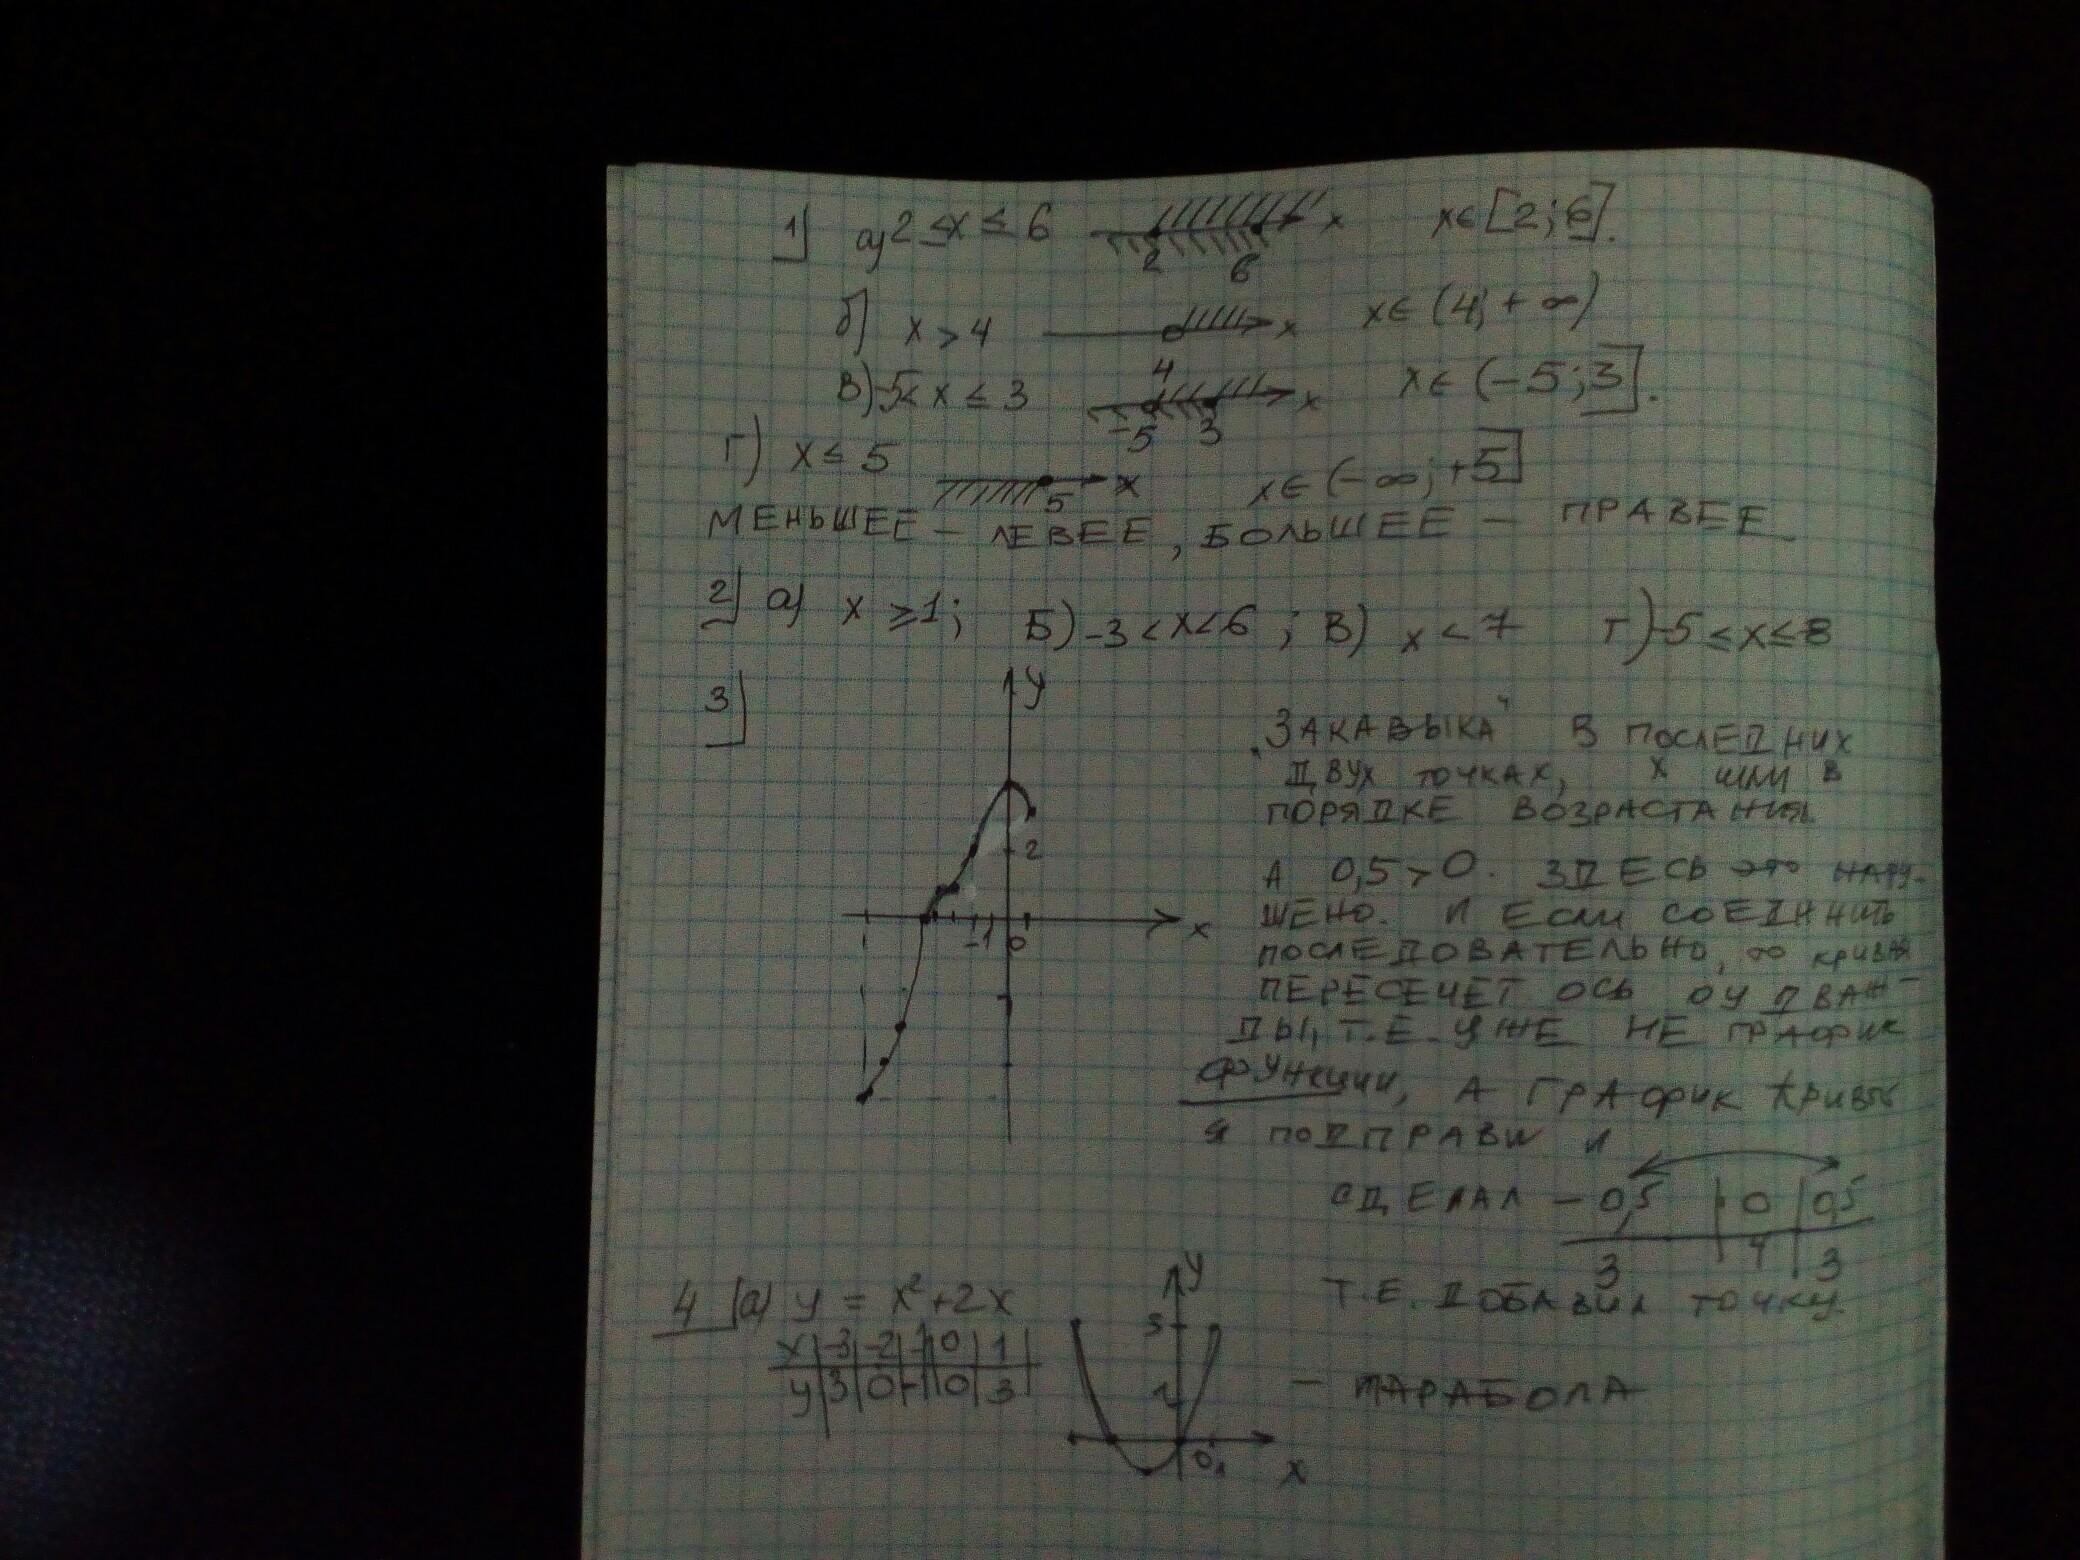 1) а) 2 ≤ x ≤ 6 2 6 x x∈[2; 6].
б) x > 4 4 x x∈ (4; +∞)
В) -5< x ≤ 3 -5 3 x x∈ (-5; 3].
г) x ≤ 5 5 x x∈ (-∞; +5]
МЕНЬШЕЕ – ЛЕВЕЕ, БОЛЬШЕЕ – ПРАВЕЕ
2) а) x ≥ 1; Б) -3 < x < 6 ; В) x < 7 г) -5 ≤ x ≤ 8
3) y 2 -1 0 x
„ЗАКАВЫКА" В ПОСЛЕДНИХ
ДВУХ ТОЧКАХ, X ШЛИ В
ПОРЯДКЕ ВОЗРАСТАНИЯ.
А 0,5 > 0. ЗДЕСЬ ЭТО НАРУ-
ШЕНО. И ЕСЛИ СОЕДИНИТЬ
ПОСЛЕДОВАТЕЛЬНО, ТО КРИВАЯ
ПЕРЕСЕЧЕТ ОСЬ ОУ ДВАЖ-
ДЫ, Т.Е. УЖЕ НЕ ГРАФИК
ФУНКЦИИ, А ГРАФИК КРИВОЙ
Я ПОДПРАВИЛ
СДЕЛАЛ -0,5 | 0 | 0,5
3 | 4 | 3
Т.Е. ДОБАВИЛ ТОЧКУ.
4 а) y = x² + 2x
x | -3 | -2 | -1 | 0 | 1
y | 3 | 0 | -1 | 0 | 3
y 3 1 0 1 x
– ПАРАБОЛА